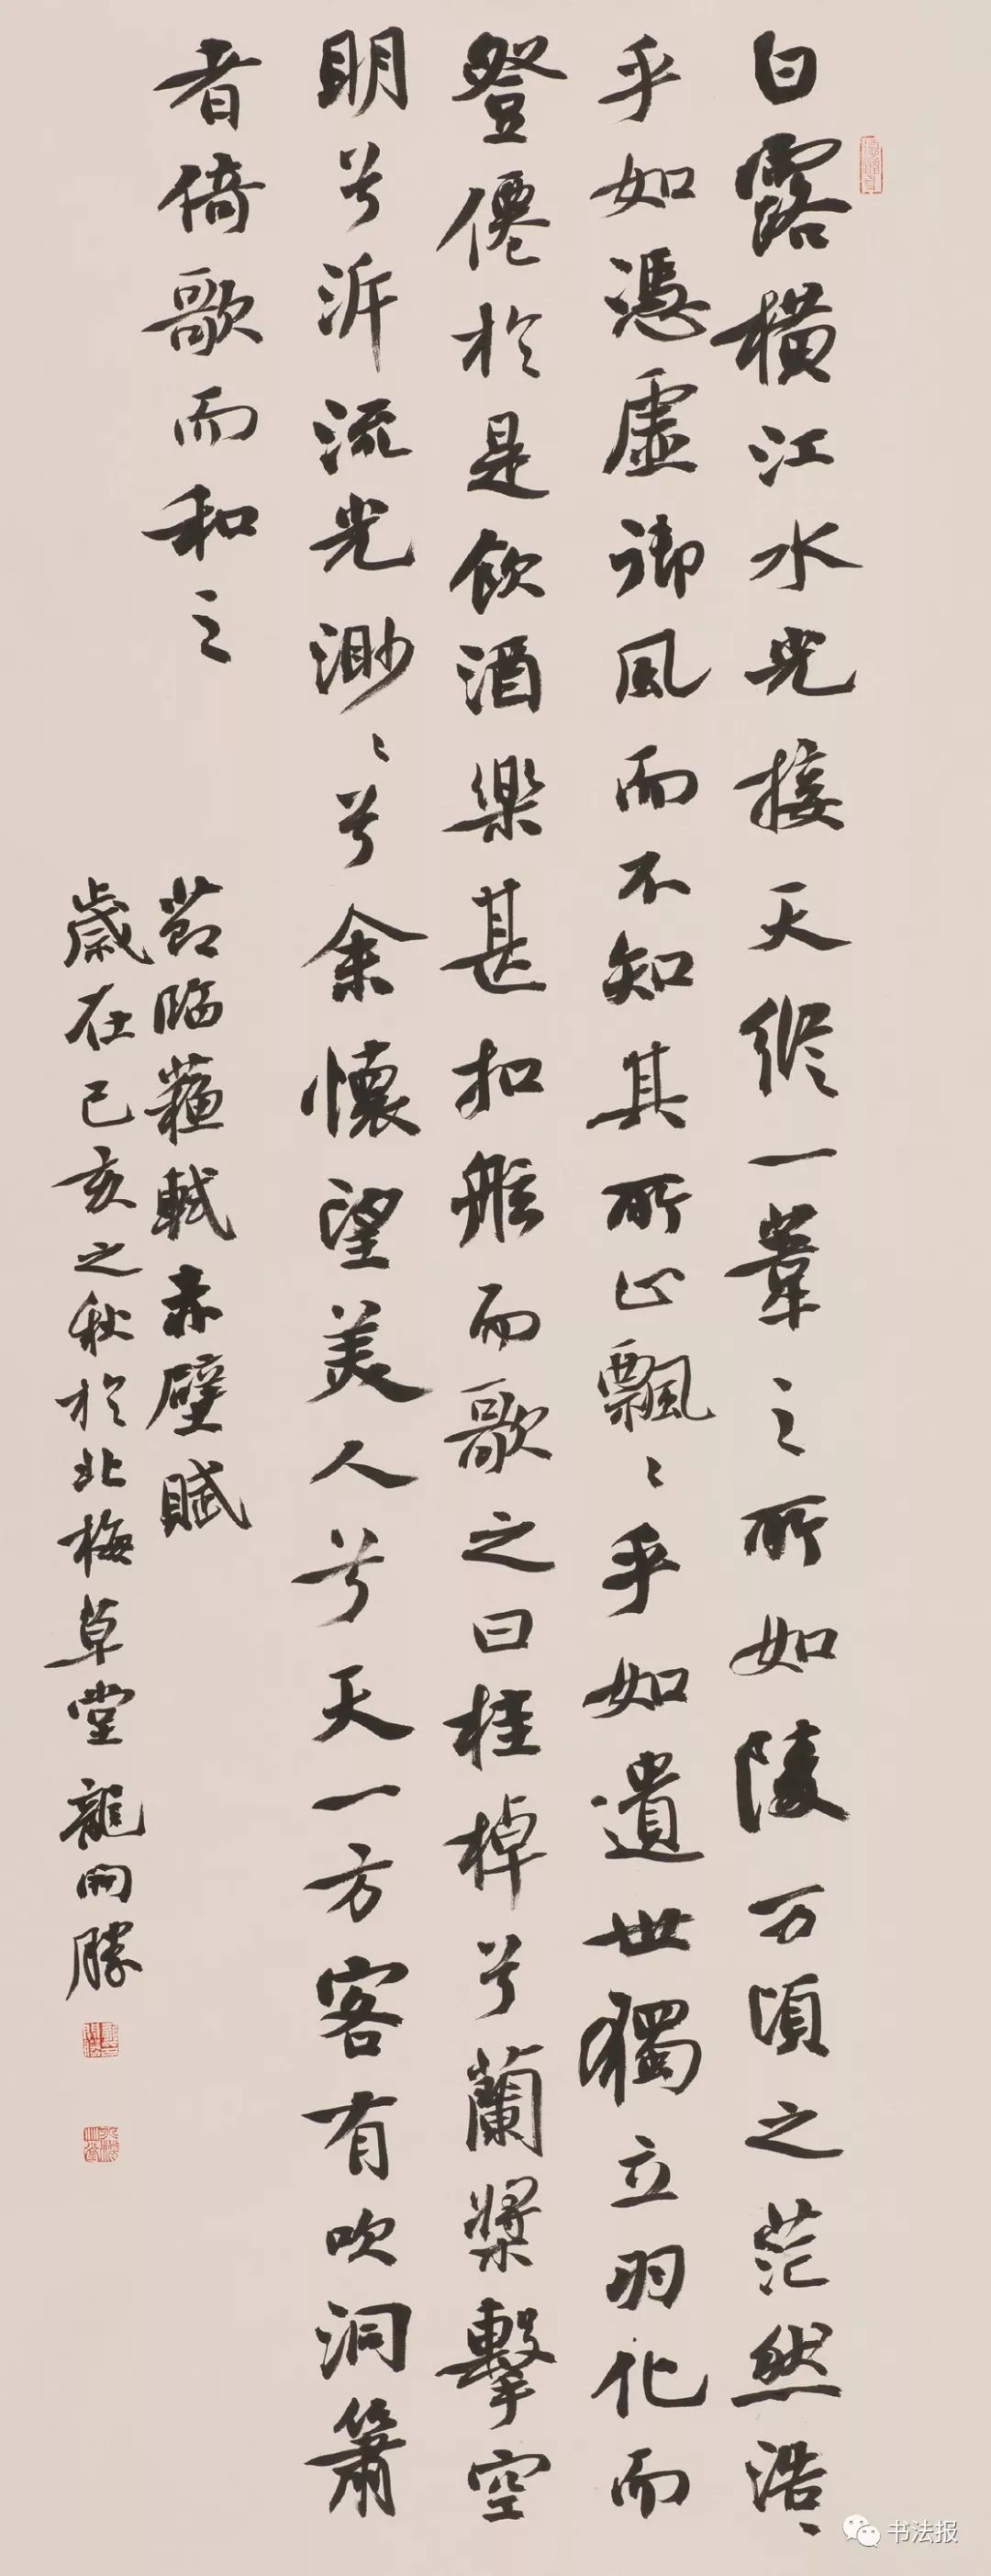 白露橫江水光接天縱一葦之所如陵万頃之茫然浩〻
乎如馮虛御風而不知其所止飄〻乎如遺世獨立羽化而
登僊於是飲酒樂甚扣舷而歌之曰桂棹兮蘭槳擊空
明兮泝流光渺〻兮余懷望美人兮天一方客有吹洞簫
者倚歌而和之
節臨蘇軾赤壁賦
歲在己亥之秋於北梅草堂龍開勝
书法报